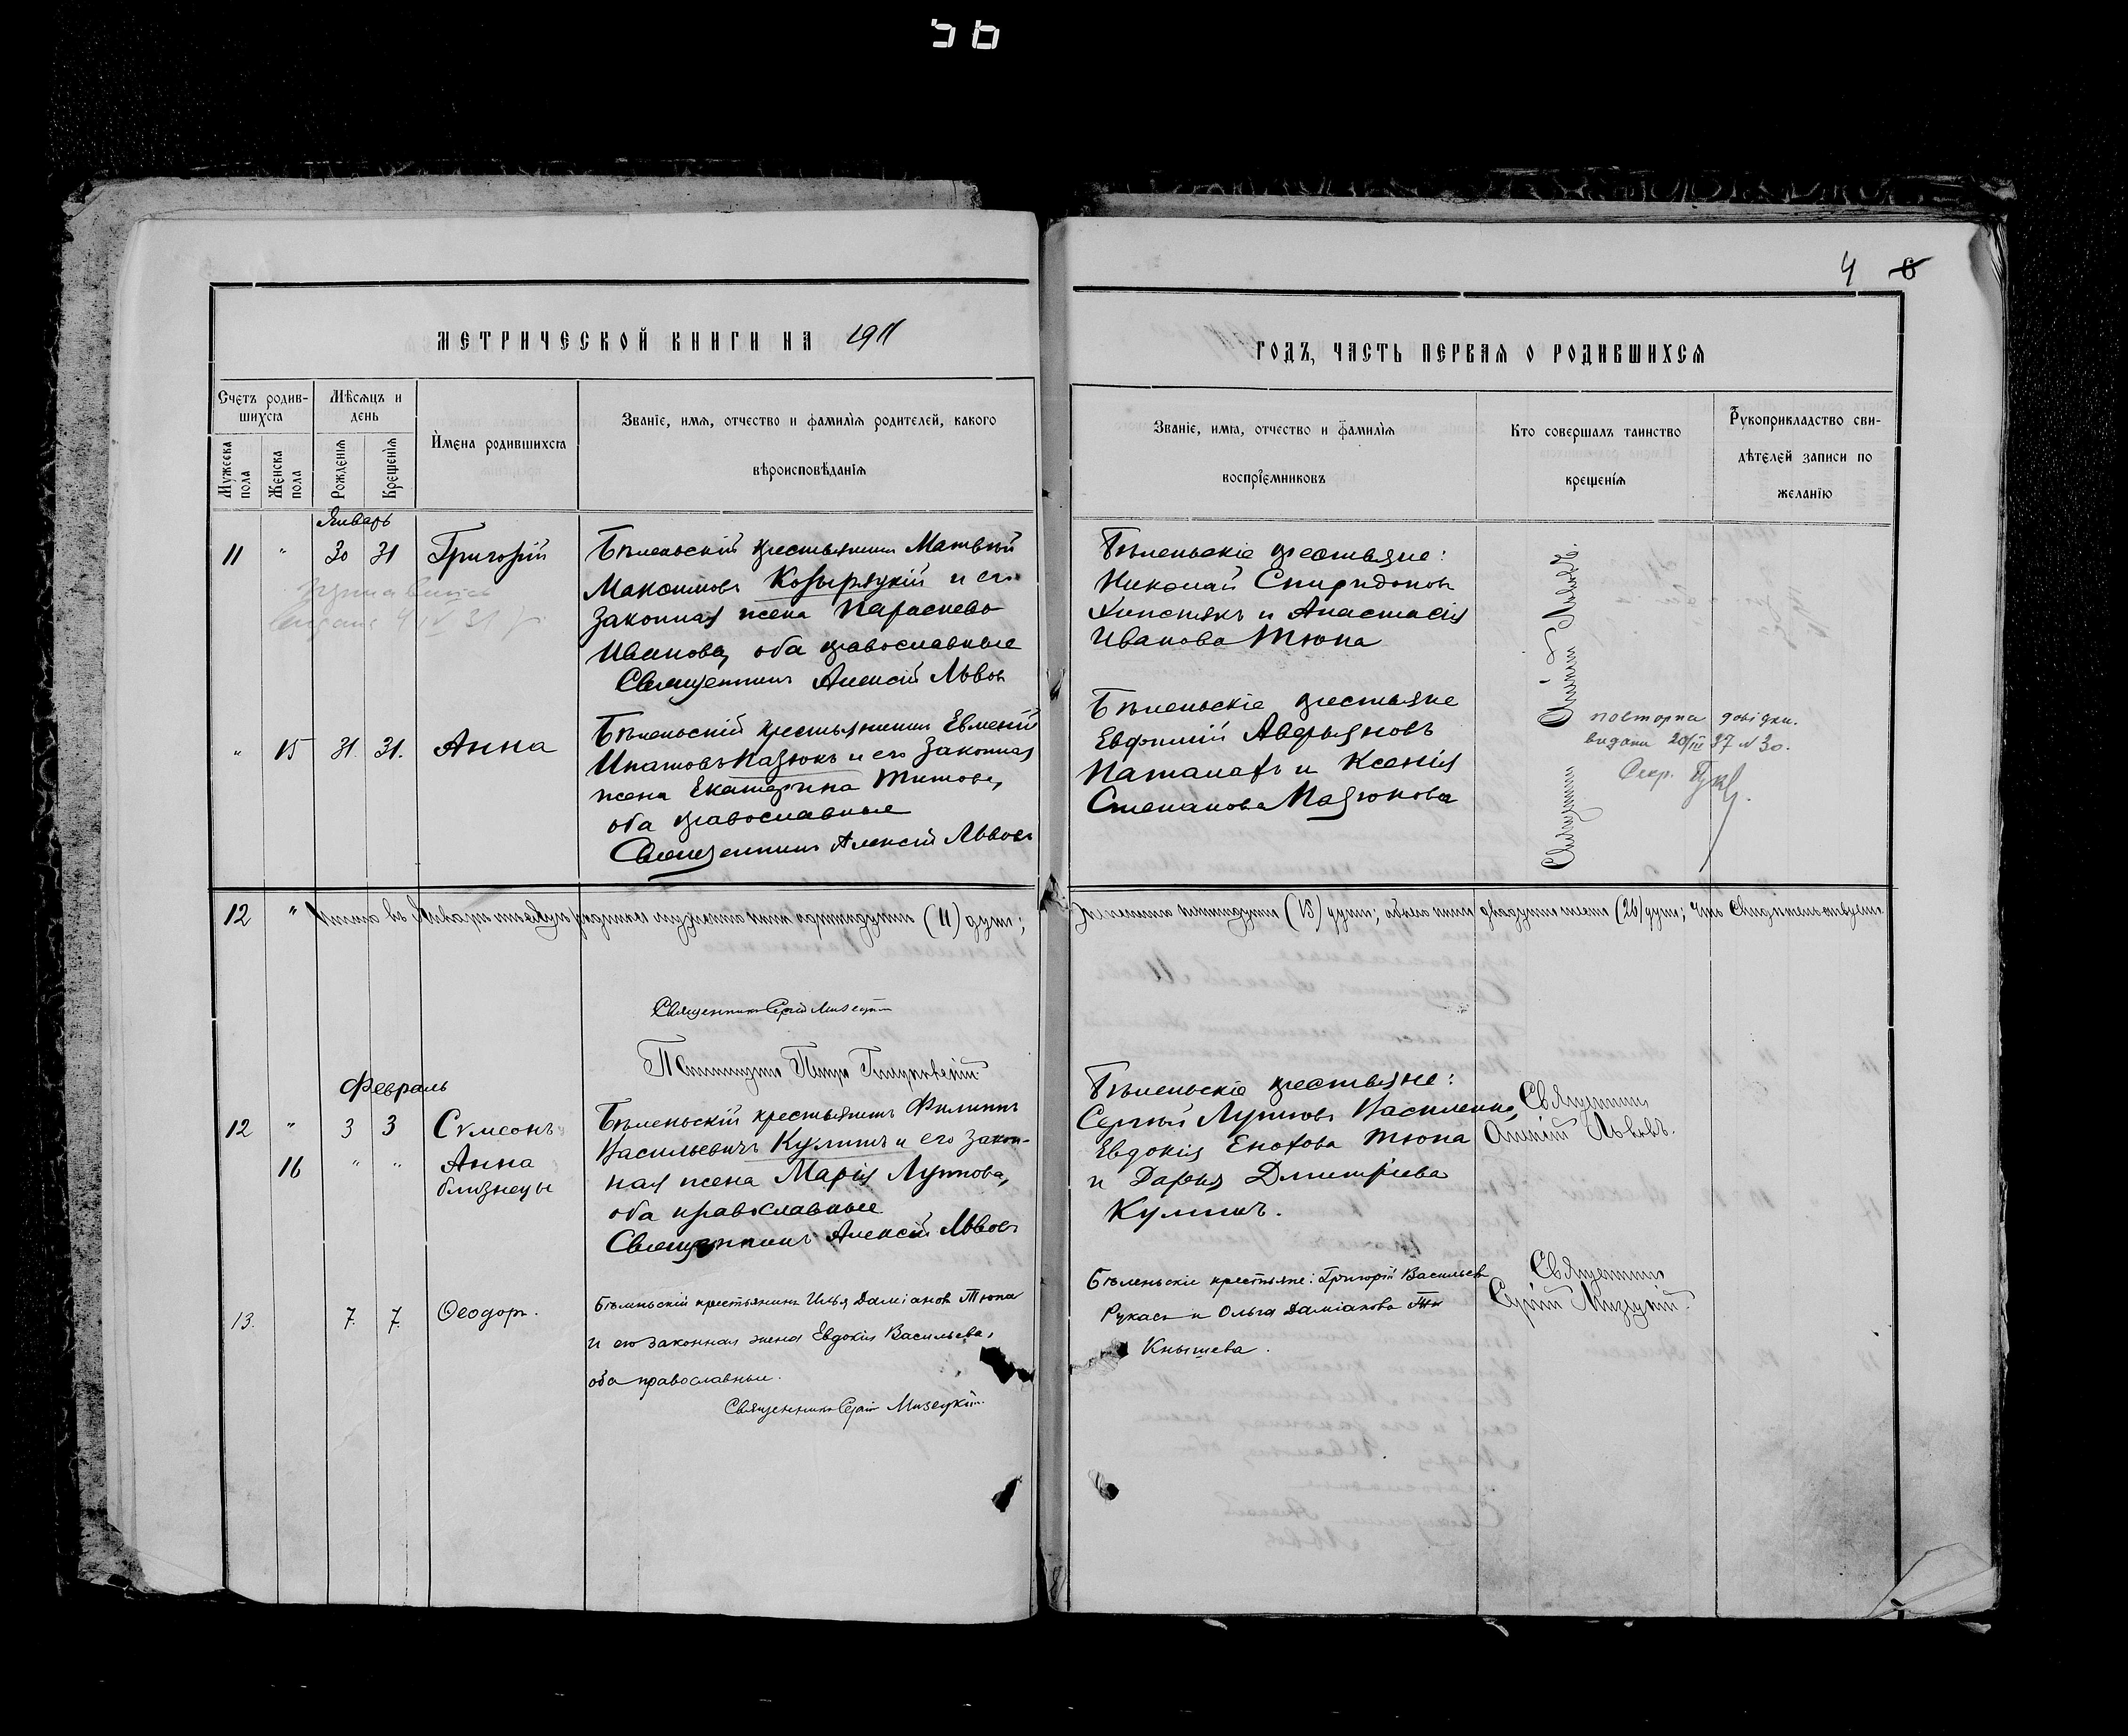 56
4 6
МЕТРИЧЕСКОЙ КНИГИ НА 1911
ГОДЪ, ЧАСТЬ ПЕРВАЯ О РОДИВШИХСЯ
Счетъ родив-
шихся
Мѣсяцъ и
день
Мужеска
пола
Женска
пола
Рожденія
Крещенія
Имена родившихся
Званіе, имя, отчество и фамилія родителей, какого
вѣроисповѣданія
Званіе, имя, отчество и фамилія
воспріемниковъ
Кто совершалъ таинство
крещенія
Рукоприкладство сви-
дѣтелей записи по
желанію
Январь
11 " 30 31 Григорій
Бѣленьскій крестьянинъ Матвѣй
Максимовъ Козыряцкій и его
законная жена Параскева
Иванова, оба православные
Священникъ Алексій Львовъ
Бѣленьскіе крестьяне:
Николай Спиридоновъ
и Анастасія
Иванова Тюпа
" 15 31. 31. Анна
Бѣленьскій крестьянинъ Евменій
Ипатовъ Назюкъ и его законная
жена Екатерина Титова,
оба православные
Священникъ Алексій Львовъ
Бѣленьскіе крестьяне
Евфимій Аверьяновъ
и Ксенія
Степанова Мазюкова
Священникъ Алексій Львовъ.
повторна довідки.
видани 20/III 37 N 30.
Секр.
12 "
Итого въ Январѣ мѣсяцѣ родилось мужеска пола одинадцать (11) душъ;
Женскаго пятнадцать (15) душъ; обоего пола двадцать шесть (26) душъ; что свидѣтельствуемъ
Священникъ Сергій Мизецкій
Псаломщикъ Петръ
Февраль
12 " 3 3 Сѵмеонъ
16 " " Анна
близнецы
Бѣленьскій крестьянинъ Филиппъ
Васильевичъ Кулишъ и его закон-
ная жена Марія Луппова,
оба православные
Священникъ Алексій Львовъ
Бѣленьскіе крестьяне:
Сергѣй Лупповъ Василенко,
Евдокія Енохова Тюпа
и Дарья Дмитріева
Кулишъ.
Священникъ
Алексій Львовъ.
13. 7. 7. Ѳеодоръ.
Бѣленьскій крестьянинъ Илья Даміановъ Тюпа
и его законная жена Евдокія Васильева,
оба православные.
Священникъ Сергій Мизецкій.
Бѣленьскіе крестьяне: Григорій Васильевъ
Рукасъ и Ольга Даміанова
Кнышева.
Священникъ
Сергій Мизецкій.